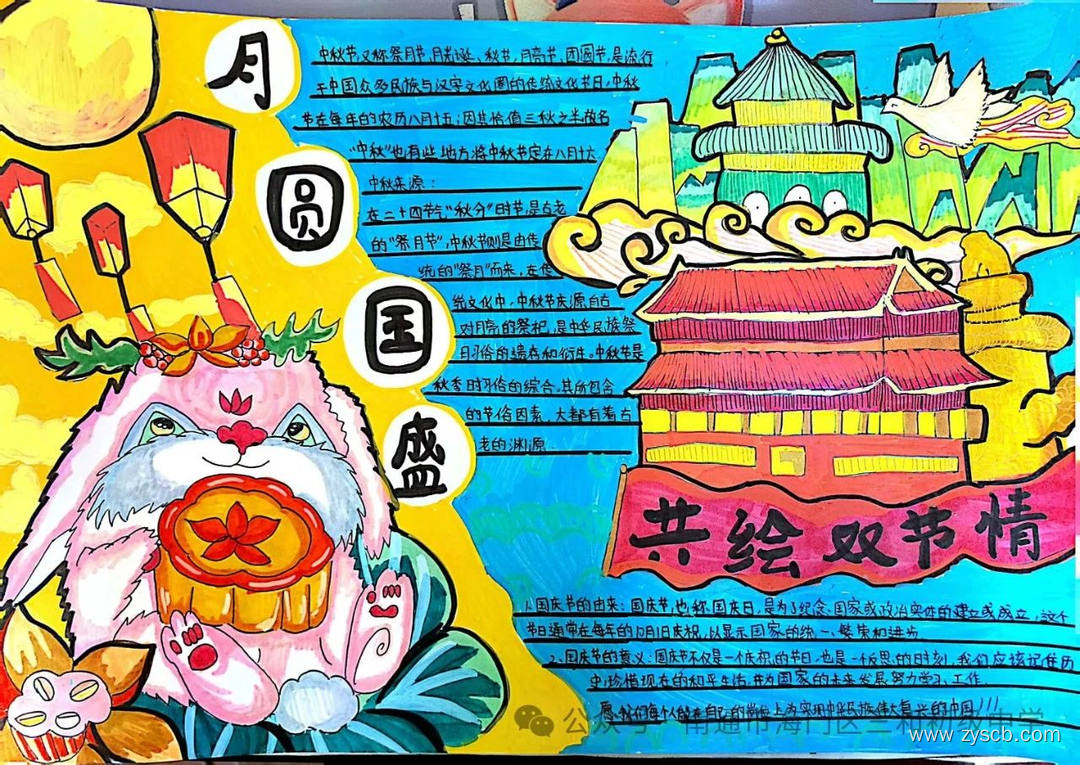 月圆国盛
中秋节,又称祭月节、月光诞、秋节、月亮节、团圆节,是流行
于中国众多民族与汉字文化圈的传统文化节日,中秋
节在每年的农历八月十五;因其恰值三秋之半故名
"中秋"也有些地方将中秋节定在八月十六
中秋来源:
在二十四节气"秋分"时节,是古老
的"祭月节",中秋节则是由传
统的"祭月"而来,在传
统文化中,中秋节来源自古
对月亮的祭祀,是中华民族祭
月习俗的遗存和衍生。中秋节是
秋季时习俗的综合,其所包含
的节俗因素,大都有着古
老的渊源
共绘双节情
1、国庆节的由来:国庆节,也称国庆日,是为了纪念国家或政治实体的建立或成立,这个
节日通常在每年的10月1日庆祝,以显示国家的统一、繁荣和进步
2、国庆节的意义:国庆节不仅是一个庆祝的节日,也是一个反思的时刻,我们应该记住历
史,珍惜现在的和平生活,并为国家的未来发展努力学习、工作.
愿我们每个人能在自己的岗位上为实现中华民族伟大复兴的中国
公众号 南通市海门区三和初级中学
www.zyscb.com